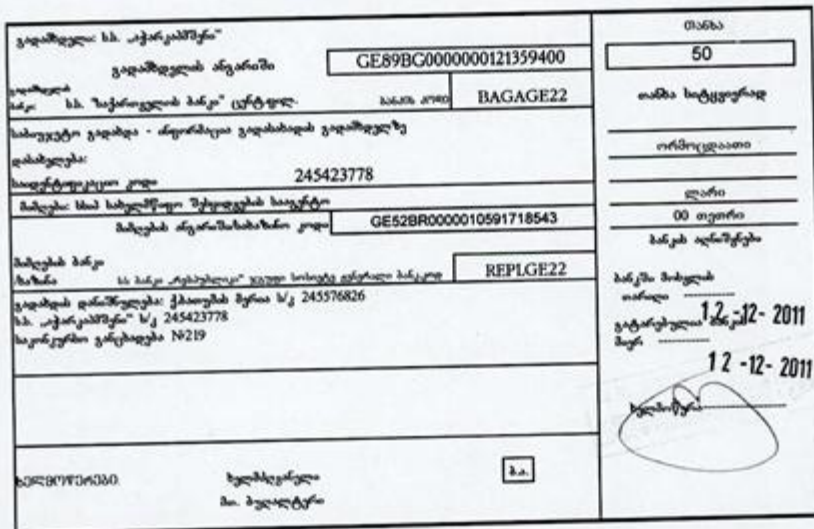 გადამხდელი: ს.ს. „აჭარკაპმშენი"
გადამხდელის ანგარიში GE89BG0000000121359400
გადამხდელის
ბანკი ს.ს. "საქართველოს ბანკი" ცენტ.ფილ. ბანკის კოდი BAGAGE22
საბიუჯეტო გადახდა - ინფორმაცია გადასახადის გადამხდელზე
დასახელება:
საიდენტიფიკაციო კოდი 245423778
მიმღები: სსიპ სახელმწიფო შესყიდვების სააგენტო
მიმღების ანგარიში/სახაზინო კოდი GE52BR0000010591718543
მიმღების ბანკი
/ხაზინა სს ბანკი „რესპუბლიკა" ჯგუფი სოსიეტე ჟენერალი ბანკ.კოდ REPLGE22
გადახდის დანიშნულება: ქ.ბათუმის მერია ს/კ 245576826
ს.ს. „აჭარკაპმშენი" ს/კ 245423778
საკონკურსო განცხადება №219
ხელმოწერები: ხელმძღვანელი ბ.ა.
მთ. ბუღალტერი
თანხა
50
თანხა სიტყვიერად
ორმოცდაათი
ლარი
00 თეთრი
ბანკის აღნიშვნები
ბანკში მოსვლის
თარიღი
12 -12- 2011
გატარებულია ბანკის
მიერ
12 -12- 2011
ხელმოწერა